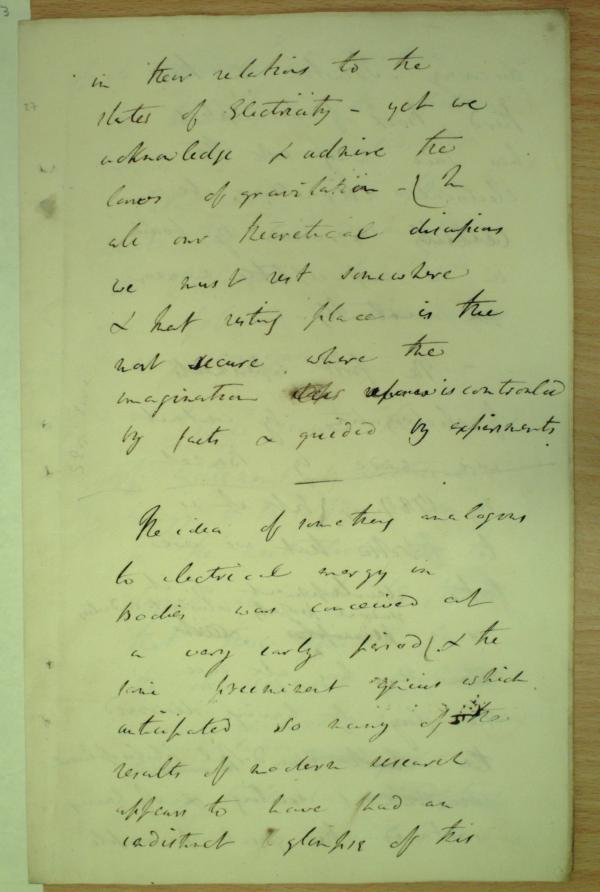 3
27
in their relations to the
states of Electricity - yet we
acknowledge & admire the
laws of gravitation - ( In
all our theoretical discussions
we must rest somewhere
& that resting place is the
most secure where the
imagination is controuled
by facts & guided by experiments.
The idea of something analogous
to electrical energy in
Bodies was conceived at
a very early period ( & the
same preeminent genius which
anticipated so many of the
results of modern research
appears to have had an
indistinct glimpse of this